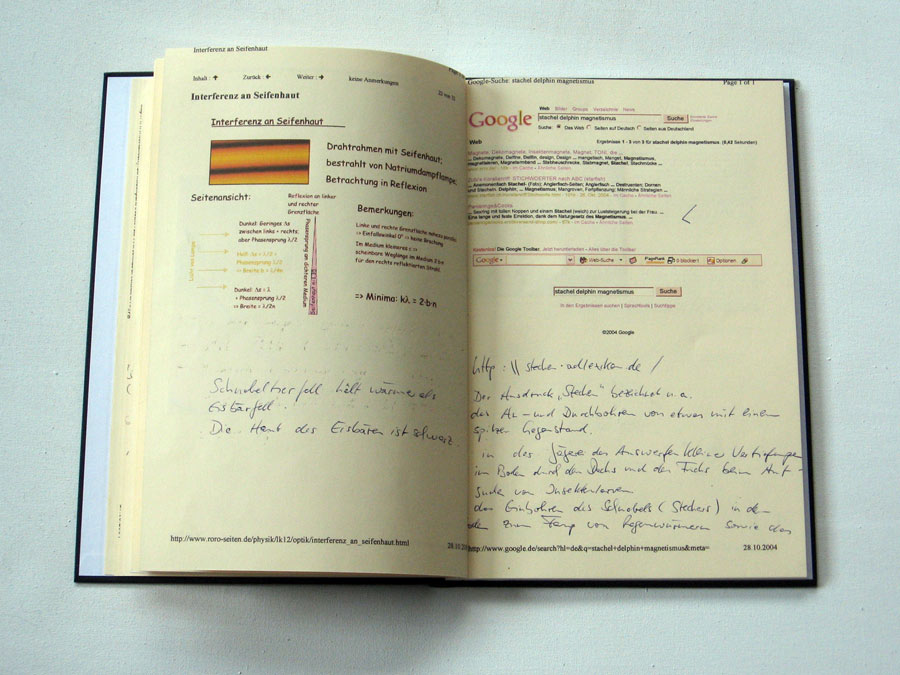 Interferenz an Seifenhaut
Inhalt : ↑ Zurück : ← Weiter : → keine Anmerkungen
Interferenz an Seifenhaut
Interferenz an Seifenhaut
Drahtrahmen mit Seifenhaut;
bestrahlt von Natriumdampflampe;
Betrachtung in Reflexion
Seitenansicht:
Reflexion an linker
und rechter
Grenzfläche
Dunkel: Geringes Δs
zwischen links + rechts;
aber Phasensprung λ/2
Hell: Δs = λ/2 +
Phasensprung λ/2
=> Breite b = λ/4n
Dunkel: Δs = λ
+ Phasensprung λ/2
=> Breite = λ/2n
Licht von Lampe
Phasensprung an dichterem Medium
Bemerkungen:
Linke und rechte Grenzfläche nahezu parallel
=> Einfallswinkel 0° => keine Brechung
Im Medium kleineres c =>
scheinbare Weglänge im Medium 2·b·n
für den rechts reflektierten Strahl.
=> Minima: kλ = 2·b·n
Schnabeltierfell hält wärmer als
Eisbärfell.
Die Haut des Eisbären ist schwarz.
http://www.roro-seiten.de/physik/lk12/optik/interferenz_an_seifenhaut.html
Google-Suche: stachel delphin magnetismus Page 1 of 1
Google
Web Bilder Groups Verzeichnis News
stachel delphin magnetismus Suche
Suche: Das Web Seiten auf Deutsch Seiten aus Deutschland
Web Ergebnisse 1 - 3 von 3 für stachel delphin magnetismus. (0,42 Sekunden)
Kostenlos! Die Google Toolbar. Jetzt herunterladen - Alles über die Toolbar
Google Web-Suche PageRank 0 blockiert Optionen
stachel delphin magnetismus Suche
In den Ergebnissen suchen | Sprachtools | Suchtipps
©2004 Google
Der Ausdruck „Stechen" bezeichnet u.a.
das An- und Durchbohren von etwas mit einem
spitzen Gegenstand.
in der Jägerei das Auswerfen kleiner Vertiefungen
im Boden durch den Dachs und den Fuchs beim Auf-
suchen von Insektenlarven
das Einbohren des Schnabels (Stechers) in den
zum Fang von Regenwürmern sowie das
http://www.google.de/search?hl=de&q=stachel+delphin+magnetismus&meta= 28.10.2004